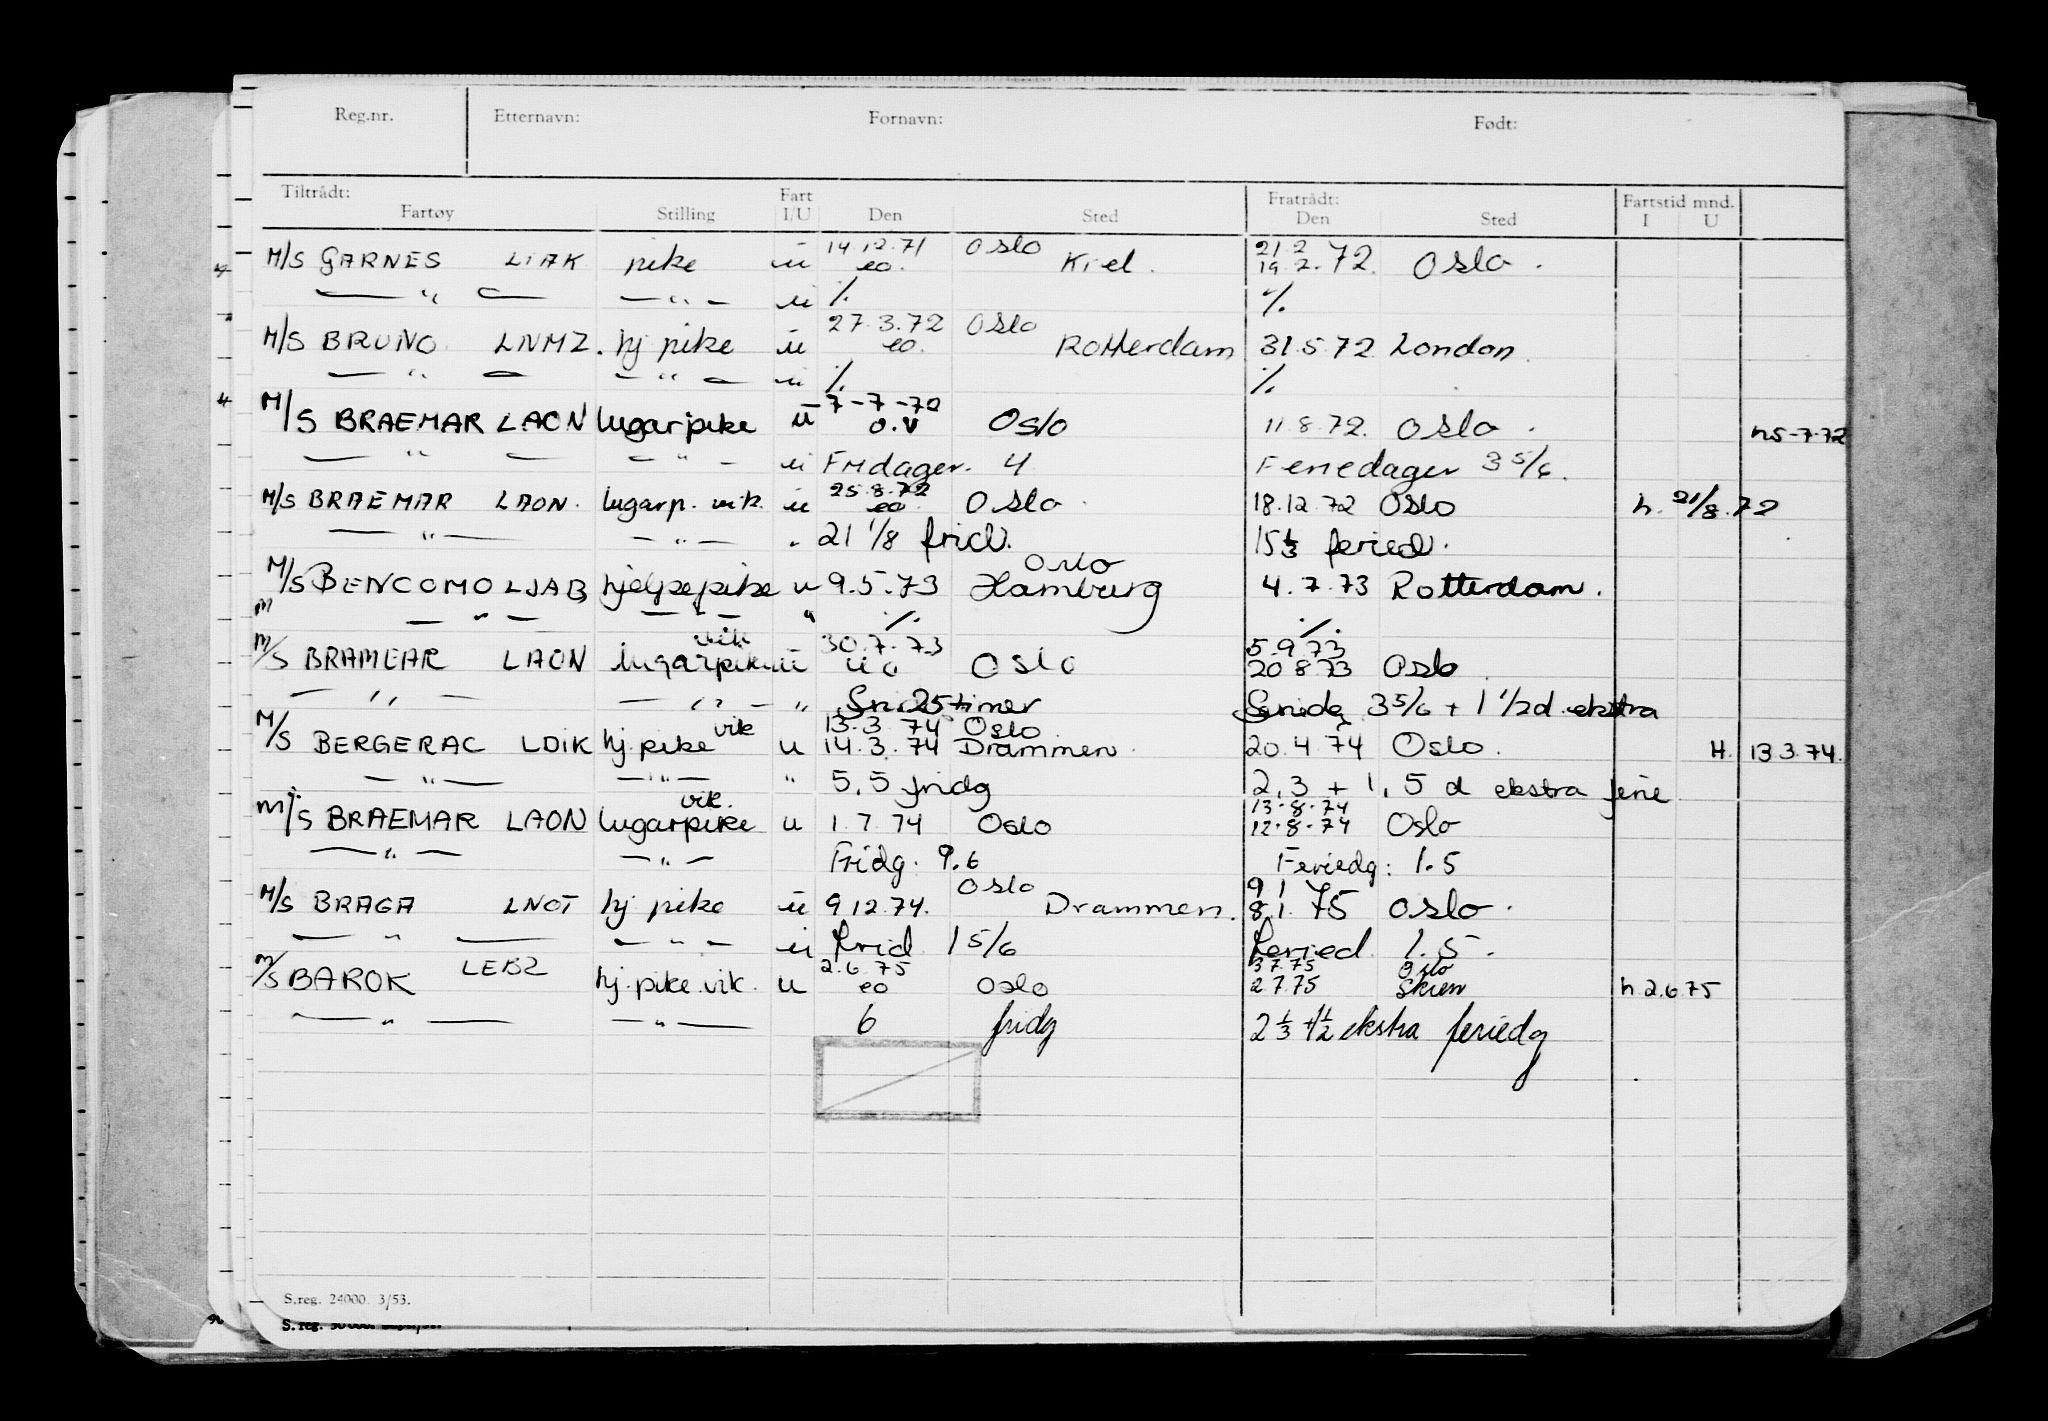 Reg.nr. Etternavn: Fornavn: Født:
Tiltrådt: Fart Fratrådt: Fartstid mnd.
Fartøy Stilling I/U Den Sted Den Sted I U
14.12.71 Oslo 21 2
M/S GARNES LIAK pike u eo. Kiel. 19.2.72. Oslo.
— " — — " — u % %
27.3.72 Oslo
M/S BRUNO LNMZ. hj pike u eo. Rotterdam 31.5.72 London.
— " — — " — u % %
7-7-72
M/S BRAEMAR LAON lugarpike u o.v Oslo 11.8.72. Oslo. h5-7-72
— " — — " — u Fridager. 4 Feriedager 3 5/6.
25.8.72
M/S BRAEMAR LAON. lugarp. vik. u eo. Oslo. 18.12.72 Oslo h. 21/8.72
— " — — " — " 21 1/8 frid. 15 1/3 feried.
Oslo
M/S BENCOMO LJAB hjelpepike u 9.5.73 Hamburg 4.7.73 Rotterdam.
m — " — — " — " % %
vik 30.7.73 5.9.73
m/S BRAMEAR LAON lugarpike u Oslo 20 8 73 Oslo.
— " — — " — " 25 timer 3 5/6 + 1 1/2 d. ekstra
vik 13.3.74 Oslo
M/S BERGERAC LDIK hj. pike u 14.3.74 Drammen. 20.4.74 Oslo. H. 13 3.74.
— " — — " — " 5,5 fridg 2,3 + 1,5 d ekstra ferie
vik. 13.8.74
m/S BRAEMAR LAON lugarpike u 1.7.74 Oslo 12.8.74 Oslo
— " — — " — Fridg: 9.6 Feriedg: 1.5
Oslo 9 1
M/S BRAGA LNOT hj pike u 9 12.74. Drammen. 8.1.75 Oslo.
— " — — " — u frid 1 5/6 feried. 1.5.
2.6.75 3 7.75 Oslo
m/S BAROK LEBZ hj. pike vik. u eo Oslo 2.7.75 Skien h.2.6.75
— " — — " — 6 fridg 2 1/3 + 1/2 ekstra feriedg
S.reg. 24000. 3/53.
S. reg.